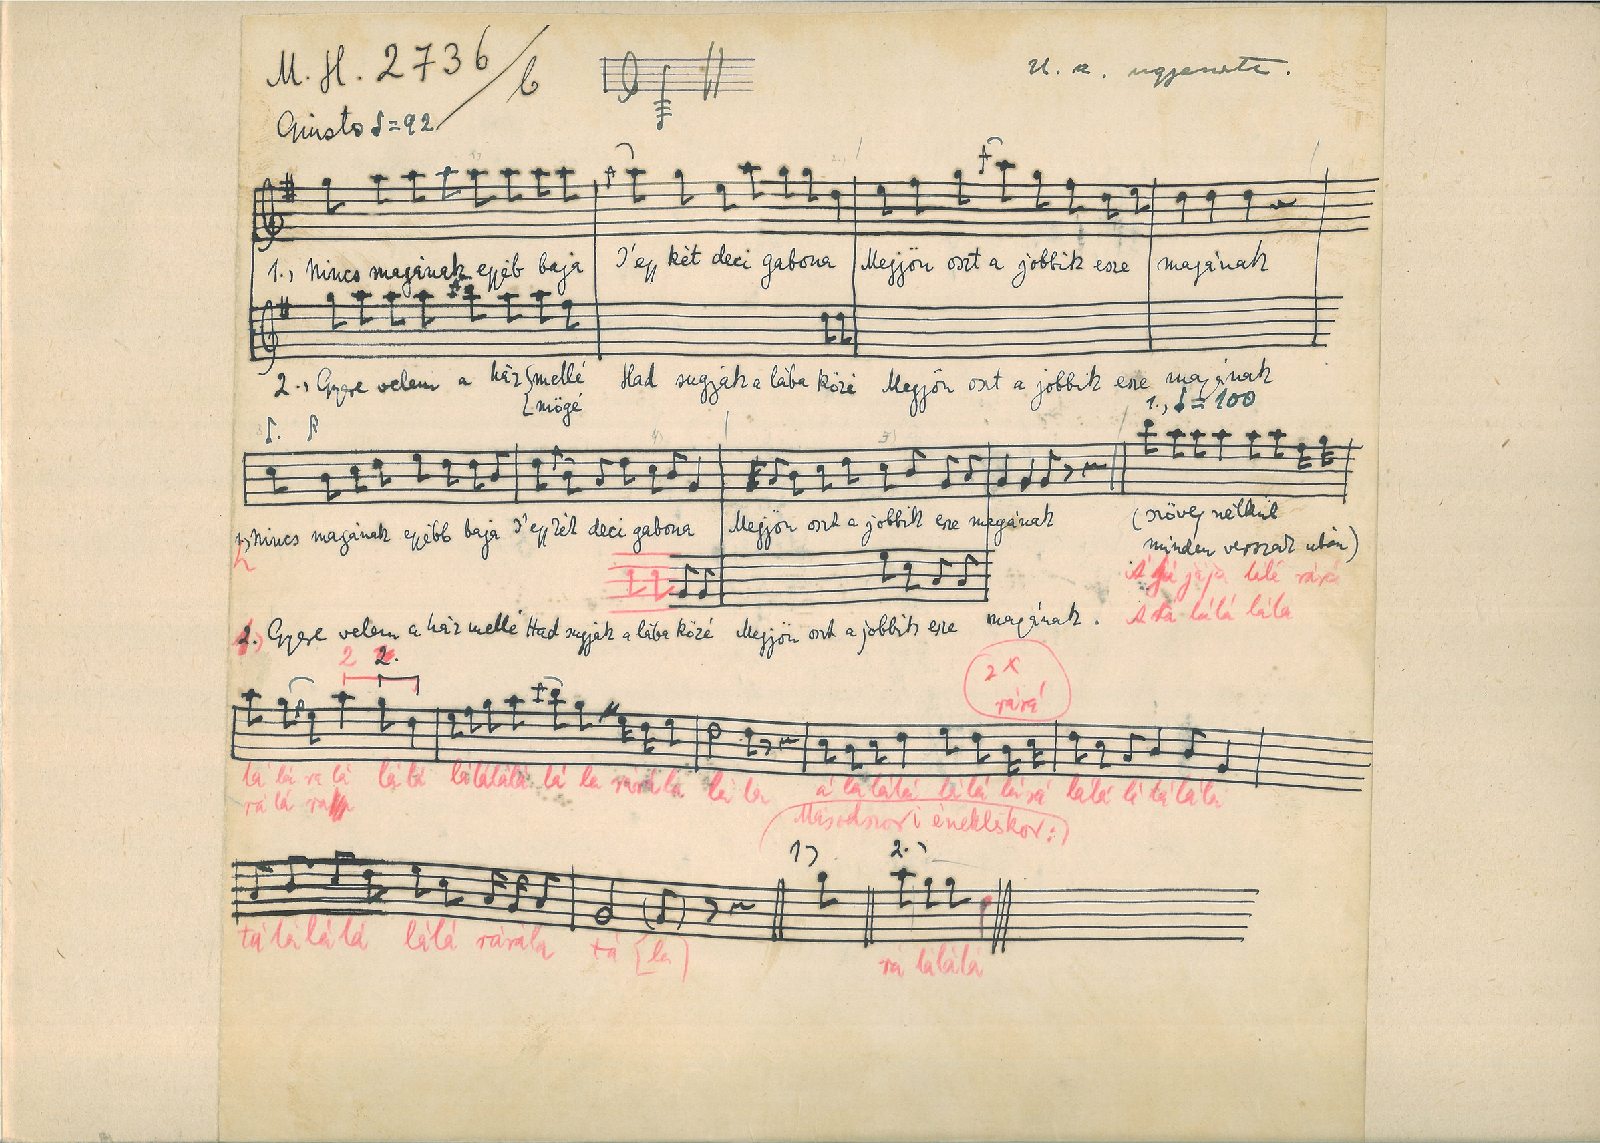 M. H. 2736/b
U. a. ugyanott.
Giusto ♪=92
1., Nincs magának egyéb baja S'egy két deci gabona Megjön oszt a jobbik esze magának
2., Gyere velem a ház {mellé Had sugják a lába közé Megjön oszt a jobbik esze magának
{mögé
1., ♪=100
1., Nincs magának egyébb baja S'egy két deci gabona Megjön oszt a jobbik esze magának
(szöveg nélkül
minden versszak után)
2. Gyere velem a ház mellé Had sugják a lába közé Megjön oszt a jobbik esze magának.
2
2.
2x
rárá
lálálálá lá la rárála la la á lalálá
(Másodszori énekléskor:)
1)
2.)
tálálálá lálá rárála tá (la)
rá lálálá